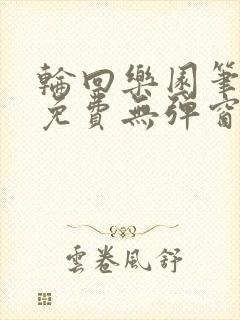 輪回樂園筆
免費無彈窗
雲卷風舒